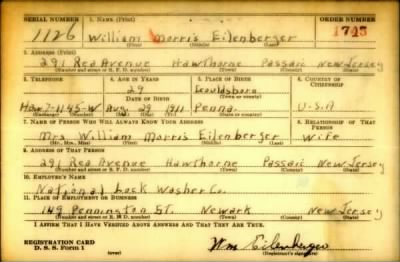 SERIAL NUMBER 1. NAME (Print) ORDER NUMBER
1126 William Morris Eilenberger 1743
(First) (Middle) (Last)
2. ADDRESS (Print)
291 Rea Avenue Hawthorne Passaic New Jersey
(Number and street or R. F. D. number) (Town) (County) (State)
3. TELEPHONE 4. AGE IN YEARS 5. PLACE OF BIRTH 6. COUNTRY OF CITIZENSHIP
29 Gouldsboro
DATE OF BIRTH (Town or county)
Haw 7-1145-W Aug. 29 1911 Penna. U.S.A
(Exchange) (Number) (Mo.) (Day) (Yr.) (State or country)
7. NAME OF PERSON WHO WILL ALWAYS KNOW YOUR ADDRESS 8. RELATIONSHIP OF THAT PERSON
Mrs William Morris Eilenberger Wife
(Mr., Mrs., Miss) (First) (Middle) (Last)
9. ADDRESS OF THAT PERSON
291 Rea Avenue Hawthorne Passaic New Jersey
(Number and street or R. F. D. number) (Town) (County) (State)
10. EMPLOYER'S NAME
National Lock Washer Co.
11. PLACE OF EMPLOYMENT OR BUSINESS
149 Pennington St. Newark New Jersey
(Number and street or R. F. D. number) (Town) (County) (State)
I AFFIRM THAT I HAVE VERIFIED ABOVE ANSWERS AND THAT THEY ARE TRUE.
REGISTRATION CARD
D. S. S. Form 1 (over) Wm Eilenberger
(Registrant's signature)